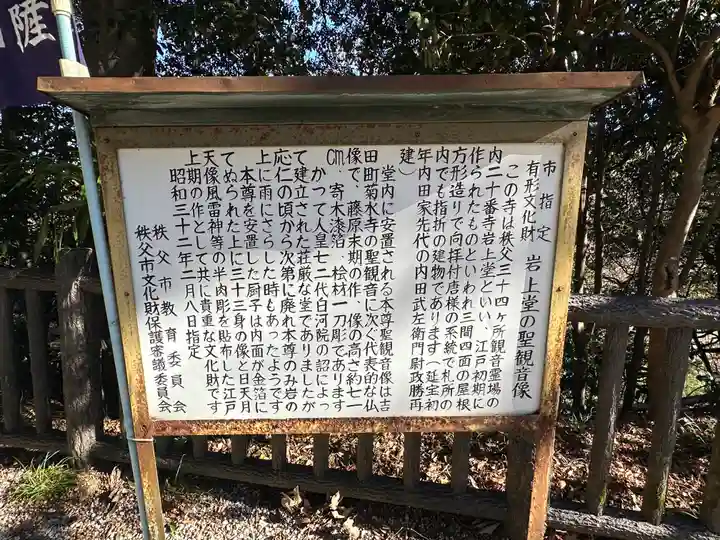 市指定
有形文化財　岩上堂の聖観音像
この寺は秩父三十四ヶ所観音霊場の
内二十番寺岩上堂といい、江戸初期に
作られたものといわれ三間四面の屋根
方形造りで向拝付唐様の系統で札所の
内でも指折の建物であります（延宝初
年内田家先代の内田武左衛門尉政勝再
建）
堂内に安置される本尊聖観音像は吉
田町菊水寺の聖観音に次ぐ代表的な仏
像で、藤原末期の作、像の高さ約七一
cm、寄木漆箔、桧材一刀彫であります
かつて人皇七二代白河院の詔によっ
て建立された荘厳な堂でありましたが
応仁の頃から次第に廃れ本尊のみ岩の
上に雨にさらした時もあったようです
本尊を安置した厨子は内面が金箔に
てぬられた上に三十三身の像と日天月
天像風雷神等の半肉彫を貼布した江戸
上期の作として共に貴重な文化財です
昭和三十二年二月八日指定
秩父市教育委員会
秩父市文化財保護審議委員会
薩